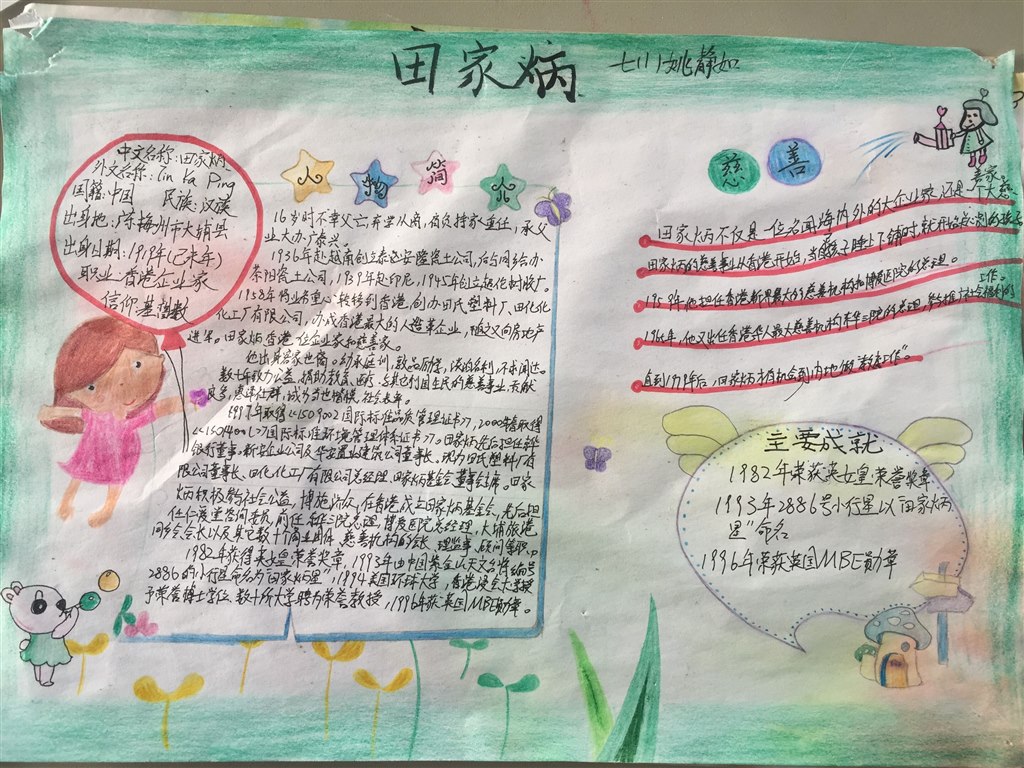 田家炳
七(1)姚静如
中文名称:田家炳
外文名称:Tin Ka Ping
国籍:中国 民族:汉族
出身地:广东梅州市大埔县
出身日期:1919年(己未年)
职业:香港企业家
信仰:基督教
人物简介
16岁时不幸父亡弃学从商,肩负持家重任,承父
业大办厂泰兴。
1936年赴越南创立泰安隆瓷土公司,后与同乡合办
茶阳瓷土公司,1939年赴印尼,1945年创立超伦树胶厂。
1958年将业务重心转移到香港,创办田氏塑料厂、田氏化
化工厂有限公司,办成香港最大的人造革企业,随之又向房地产
进军。田家炳香港一位企业家和慈善家。
他出身君家世儒。幼承庭训,敦品励学,淡泊名利,不求闻达。
数七年致力公益,捐助教育、医疗、与其它利国生民的慈善事业,贡献
良多,惠泽社群,
1997年取得《ISO9002国际标准品质管理证书》,2000年春取得
《ISO14001》国际标准环境管理体系证书》。田家炳先后担任
银行董事、新安企业公司及华安置业建筑公司董事长、现为田氏塑料厂有
限公司董事长、田氏化工厂有限公司总经理、田家炳基金会董事会主席。田家
炳积极参与社会公益,博施济众,在香港成立田家炳基金会,先后担
任仁爱堂咨询委员、前任东华三院总理、博爱医院总经理,大埔旅港
同乡会会长以及其它数十个商业团体、慈善机构的会长、理监事、顾问等职。
1982年获得英女皇荣誉奖章,1993年由中国紫金山天文台将编号
2886的小行星命名为"田家炳星",1994美国环球大学,香港浸会大学授
予荣誉博士学位,数十所大学聘为荣誉教授,1996年获英国MBE勋章。
慈善
田家炳不仅是一位名闻海内外的大企业家,还是一个大慈
善家。
田家炳的慈善事业从香港开始,
1959年他担任香港新界最大的慈善机构和博爱医院的总理。
1964年,他又出任香港华人最大慈善机构东华三院的总理,
工作。
直到1978年后,田家炳才有机会到内地做"善德工作"。
主要成就
1982年荣获英女皇荣誉奖章
1993年2886号小行星以"田家炳
星"命名
1996年荣获英国MBE勋章